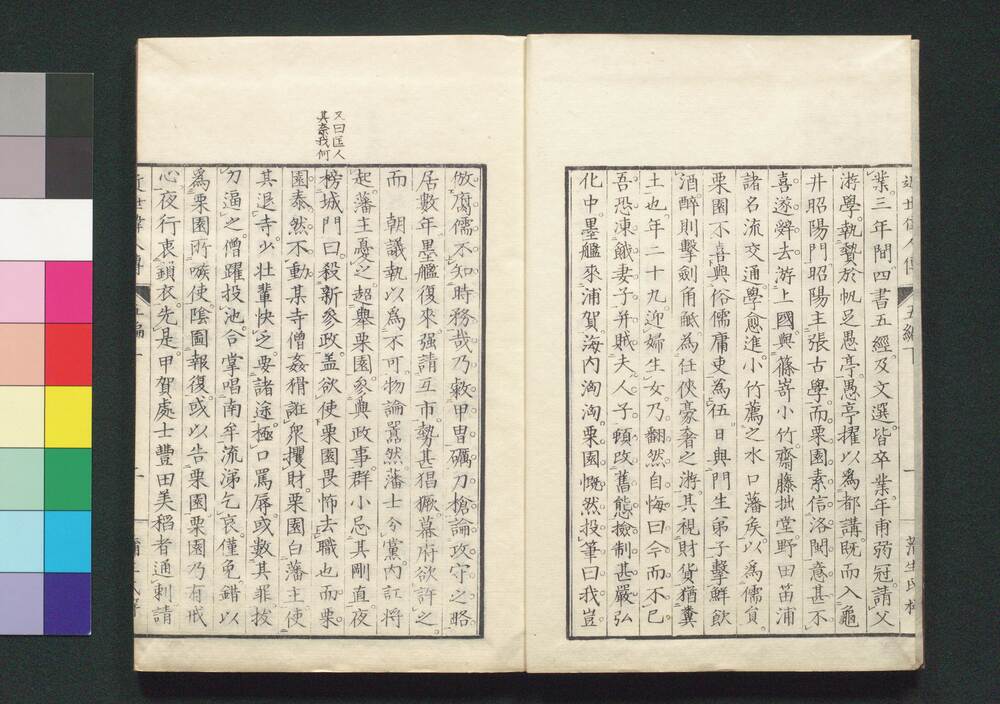 業三年間四書五經及文選皆卒業年甫弱冠請父
游學執贄於帆足愚亭愚亭擢以爲都講既而入龜
井昭陽門昭陽主張古學而栗園素信洛閩意甚不
喜遂辭去游上國與篠嵜小竹齋藤拙堂野田笛浦
諸名流交通學愈進小竹薦之水口藩矦以爲儒員
栗園不喜與俗儒庸吏爲伍日與門生弟子擊鮮飲
酒醉則擊劍角觝為任俠豪奢之游其視財貨猶糞
土也年二十九迎婦生女乃翻然自悔曰今而不已
吾恐凍餓妻子并賊夫人子頓改舊態撿制甚嚴弘
化中墨艦來浦賀海内洶洶栗園慨然投筆曰我豈
又曰匡人
其柰我何
倣腐儒不知時務哉乃敹甲冑礪刀槍論攻守之略
居數年墨艦復來强請互市勢甚猖獗幕府欲許之
而　朝議執以爲不可物論嚣然藩士分黨内訌將
起藩主憂之超舉栗園參與政事群小忌其剛直夜
榜城門曰殺新參政盖欲使栗園畏怖去職也而栗
園泰然不動某寺僧姦猾誑衆攫財栗園白藩主使
其退寺少壯輩快之要諸途極口罵辱或數其罪拔
刀逼之僧躍投池合掌唱南牟流涕乞哀僅免錯以
爲栗園所嗾使陰圖報復或以告栗園栗園乃有戒
心夜行衷鎖衣先是甲賀處士豊田美稻者通刺請
近世偉人傳
五編
一
蒲生氏梓